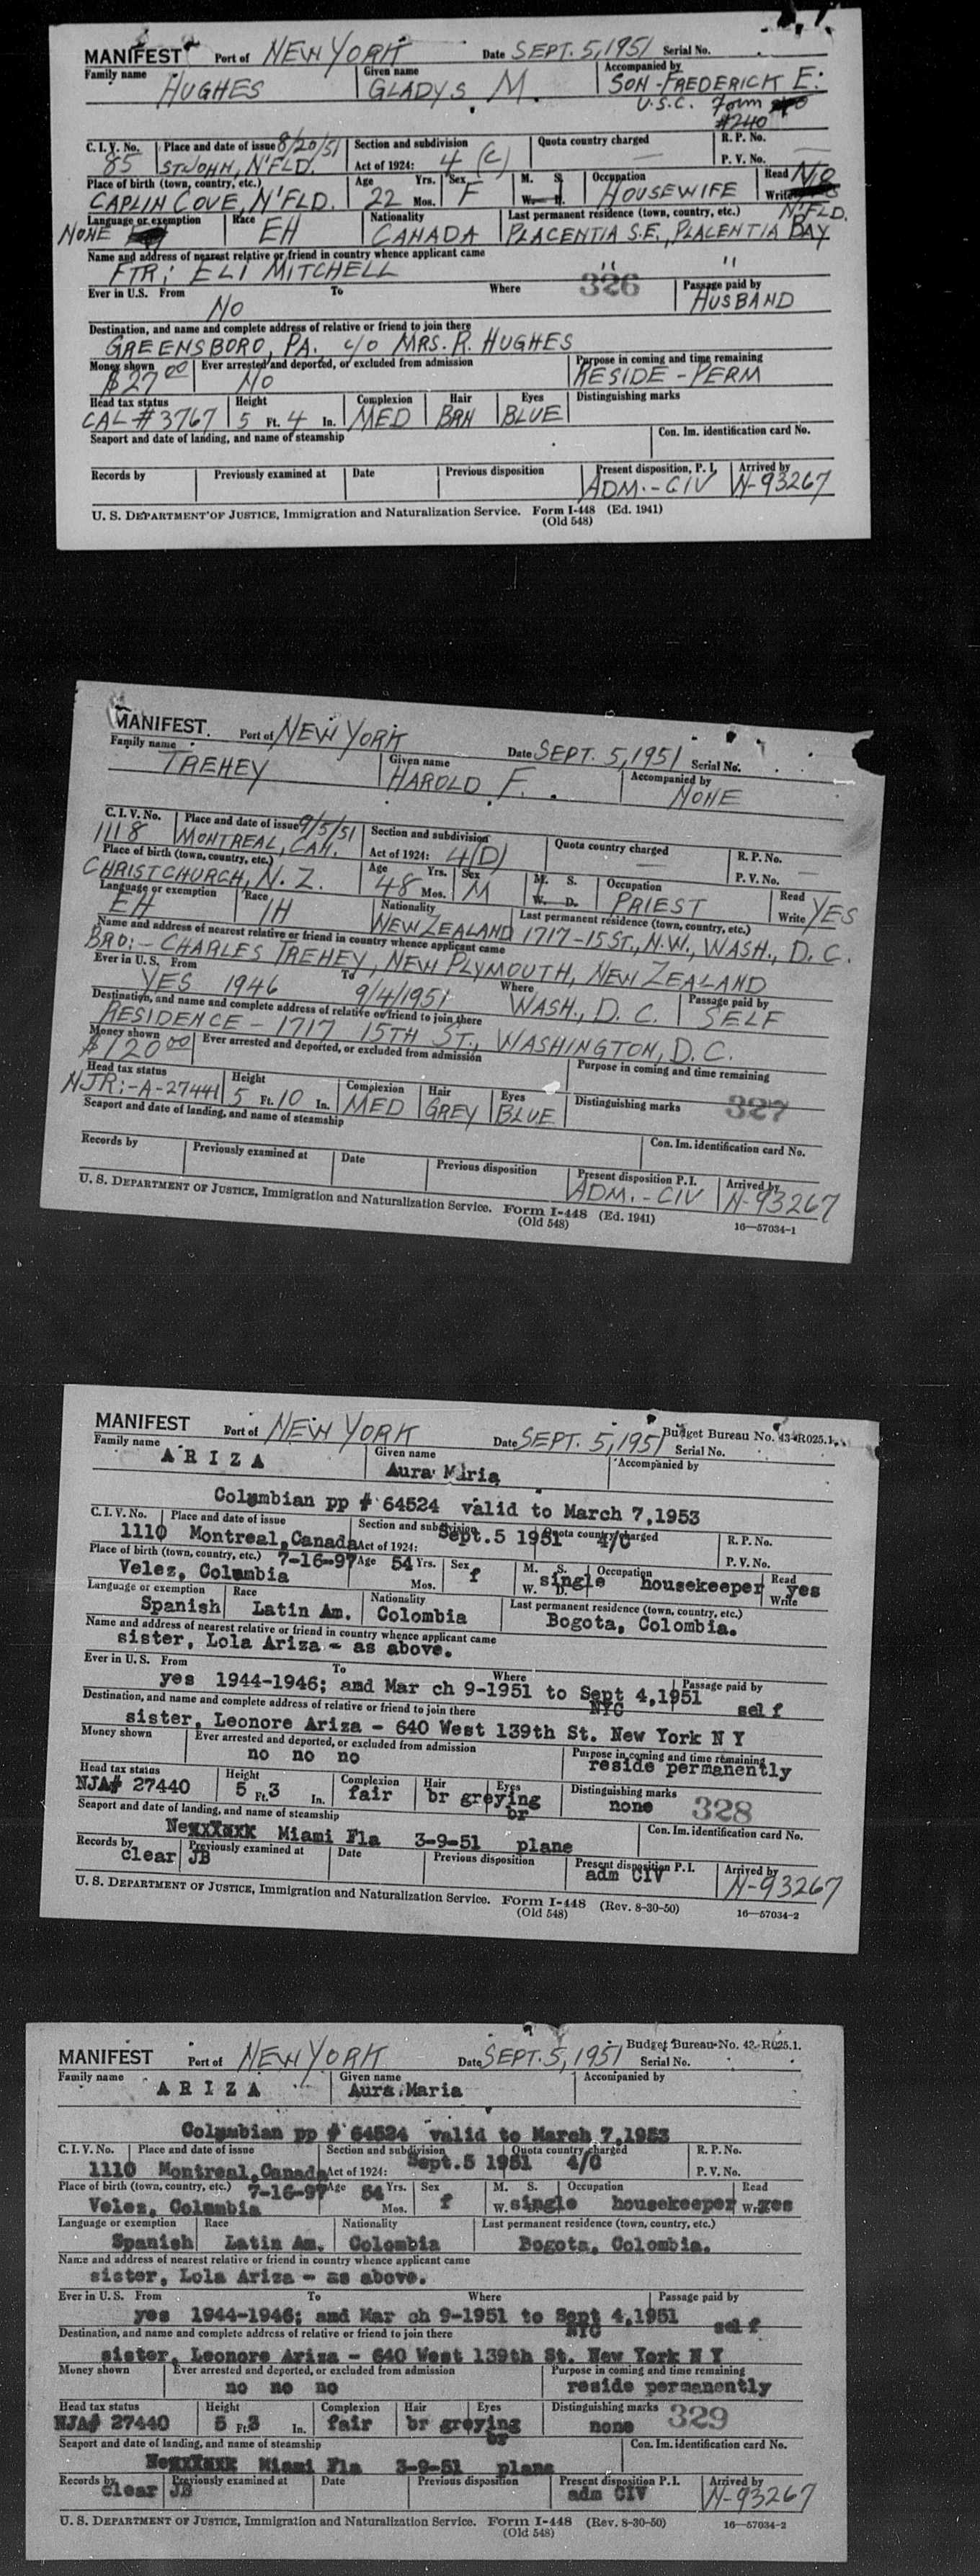 MANIFEST Port of NEW YORK Date SEPT. 5, 1951 Serial No.
Family name Given name Accompanied by
HUGHES GLADYS M. SON-FREDERICK E.
U.S.C. Form
#240
C. I. V. No. Place and date of issue 8/20/51 Section and subdivision Quota country charged R. P. No.
85 ST JOHN, N'FLD. Act of 1924: 4 (C) — P. V. No. —
Place of birth (town, country, etc.) Age Yrs. Sex M. S. Occupation Read NO
CAPLIN COVE, N'FLD. 22 Mos. F W. D. HOUSEWIFE Write
Language or exemption Race Nationality Last permanent residence (town, country, etc.) N'FLD.
NONE EH CANADA PLACENTIA S.E., PLACENTIA BAY
Name and address of nearest relative or friend in country whence applicant came
FTR: ELI MITCHELL " "
Ever in U.S. From To Where 326 Passage paid by
NO HUSBAND
Destination, and name and complete address of relative or friend to join there
GREENSBORO, PA. c/o MRS. R. HUGHES
Money shown Ever arrested and deported, or excluded from admission Purpose in coming and time remaining
$27 00 NO RESIDE - PERM
Head tax status Height Complexion Hair Eyes Distinguishing marks
CAL # 3767 5 Ft. 4 In. MED BRN BLUE
Seaport and date of landing, and name of steamship Con. Im. identification card No.
Records by Previously examined at Date Previous disposition Present disposition, P. I. Arrived by
ADM.-CIV N-93267
U. S. DEPARTMENT OF JUSTICE, Immigration and Naturalization Service. Form I-448 (Ed. 1941)
(Old 548)
MANIFEST Port of NEW YORK Date SEPT. 5, 1951 Serial No.
Family name Given name Accompanied by
TREHEY HAROLD F. NONE
C. I. V. No. Place and date of issue 9/5/51 Section and subdivision Quota country charged R. P. No.
1118 MONTREAL, CAN. Act of 1924: 4(D) — P. V. No. —
Place of birth (town, country, etc.) Age Yrs. Sex M. S. Occupation Read
CHRISTCHURCH, N.Z. 48 Mos. M W. D. PRIEST Write YES
Language or exemption Race Nationality Last permanent residence (town, country, etc.)
EH IH NEW ZEALAND 1717-15 ST., N.W., WASH., D.C.
Name and address of nearest relative or friend in country whence applicant came
BRO:- CHARLES TREHEY, NEW PLYMOUTH, NEW ZEALAND
Ever in U. S. From To Where Passage paid by
YES 1946 9/4/1951 WASH., D.C. SELF
Destination, and name and complete address of relative or friend to join there
RESIDENCE - 1717 15TH ST., WASHINGTON, D.C.
Money shown Ever arrested and deported, or excluded from admission Purpose in coming and time remaining
$120 00
Head tax status Height Complexion Hair Eyes Distinguishing marks 327
NJR:-A-27441 5 Ft. 10 In. MED GREY BLUE
Seaport and date of landing, and name of steamship Con. Im. identification card No.
Records by Previously examined at Date Previous disposition Present disposition P.I. Arrived by
ADM.-CIV N-93267
U. S. DEPARTMENT OF JUSTICE, Immigration and Naturalization Service. Form I-448 (Ed. 1941)
(Old 548) 16—57034-1
MANIFEST Port of NEW YORK Date SEPT. 5, 1951 Budget Bureau No. 43-R025.1.
Serial No.
Family name Given name Accompanied by
ARIZA Aura Maria
Columbian pp # 64524 valid to March 7,1953
C. I. V. No. Place and date of issue Section and subdivision Quota country charged R. P. No.
1110 Montreal,Canada Act of 1924: Sept.5 1951 4/C P. V. No.
Place of birth (town, country, etc.) 7-16-97 Age 54 Yrs. Sex M. S. Occupation Read
Velez, Colombia Mos. f W. D. single housekeeper yes Write
Language or exemption Race Nationality Last permanent residence (town, country, etc.)
Spanish Latin Am. Colombia Bogota, Colombia.
Name and address of nearest relative or friend in country whence applicant came
sister, Lola Ariza - as above.
Ever in U. S. From To Where Passage paid by
yes 1944-1946; and Mar ch 9-1951 to Sept 4,1951 self
NYC
Destination, and name and complete address of relative or friend to join there
sister, Leonore Ariza - 640 West 139th St. New York N Y
Money shown Ever arrested and deported, or excluded from admission Purpose in coming and time remaining
no no no reside permanently
Head tax status Height Complexion Hair Eyes Distinguishing marks
NJA# 27440 5 Ft. 3 In. fair br greying br none 328
Seaport and date of landing, and name of steamship Con. Im. identification card No.
Miami Fla 3-9-51 plane
Records by Previously examined at Date Previous disposition Present disposition P. I. Arrived by
clear JB adm CIV N-93267
U. S. DEPARTMENT OF JUSTICE, Immigration and Naturalization Service. Form I-448 (Rev. 8-30-50)
(Old 548) 16—57034-2
MANIFEST Port of NEW YORK Date SEPT. 5, 1951 Budget Bureau No. 43-R025.1.
Serial No.
Family name Given name Accompanied by
ARIZA Aura Maria
Columbian pp # 64524 valid to March 7,1953
C. I. V. No. Place and date of issue Section and subdivision Quota country charged R. P. No.
1110 Montreal,Canada Act of 1924: Sept.5 1951 4/C P. V. No.
Place of birth (town, country, etc.) 7-16-97 Age 54 Yrs. Sex M. S. Occupation Read
Velez, Colombia Mos. f W. single housekeeper Write yes
Language or exemption Race Nationality Last permanent residence (town, country, etc.)
Spanish Latin Am. Colombia Bogota, Colombia.
Name and address of nearest relative or friend in country whence applicant came
sister, Lola Ariza - as above.
Ever in U. S. From To Where Passage paid by
yes 1944-1946; and Mar ch 9-1951 to Sept 4,1951 self
NYC
Destination, and name and complete address of relative or friend to join there
sister, Leonore Ariza - 640 West 139th St. New York N Y
Money shown Ever arrested and deported, or excluded from admission Purpose in coming and time remaining
no no no reside permanently
Head tax status Height Complexion Hair Eyes Distinguishing marks
NJA# 27440 5 Ft. 3 In. fair br greying br none 329
Seaport and date of landing, and name of steamship Con. Im. identification card No.
Miami Fla 3-9-51 plane
Records by Previously examined at Date Previous disposition Present disposition P. I. Arrived by
clear JB adm CIV N-93267
U. S. DEPARTMENT OF JUSTICE, Immigration and Naturalization Service. Form I-448 (Rev. 8-30-50)
(Old 548) 16—57034-2